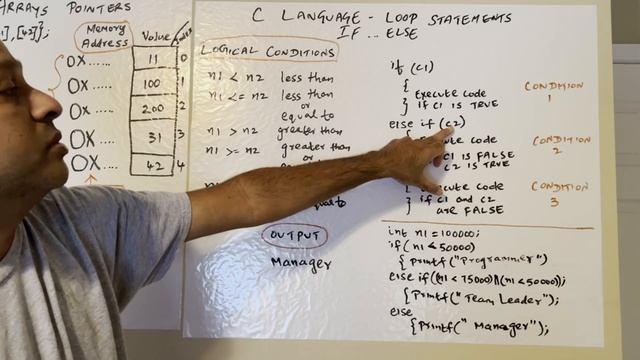 ARRAYS POINTERS
1],[42]};
Memory
Address
Value
0X.....
11
0
0X.....
100
1
0X.....
200
2
0X.....
31
3
0X.....
42
4
C LANGUAGE - LOOP STATEMENTS
IF ... ELSE
LOGICAL CONDITIONS
n1 < n2 less than
n1 <= n2 less than
or
equal to
n1 > n2 greater than
n1 >= n2 greater than
or
OUTPUT
Manager
if (C1)
{
Execute code
} if C1 IS TRUE
CONDITION
1
else if (C2)
{
code
C1 IS FALSE
C2 IS TRUE
CONDITION
2
{ code
} if C1 and C2
are FALSE
CONDITION
3
int n1 = 100000;
if (n1 < 50000)
{ printf("Programmer")
else if((n1 < 75000)||(n1 < 50000));
{Printf("Team Leader");
else
{printf(" Manager");